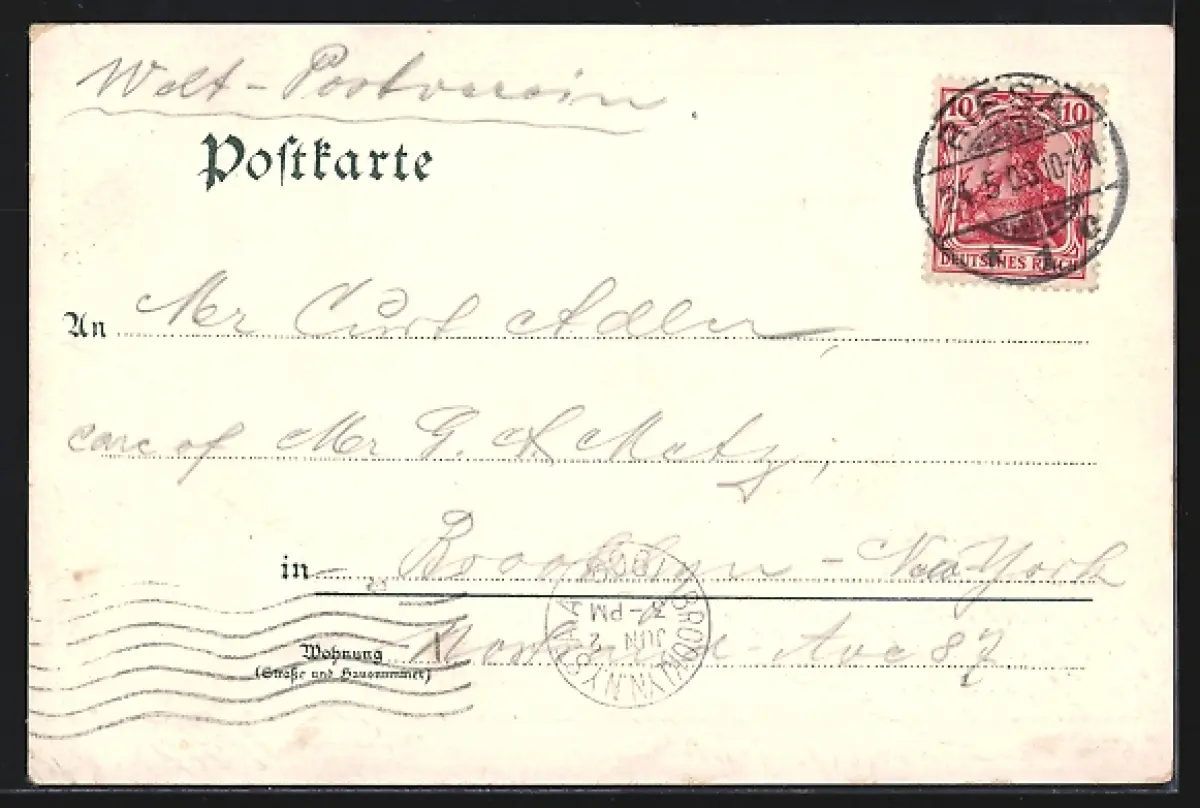 Welt-Postverein.
Postkarte
10 10
DEUTSCHES REICH
RIESA
* 1 c
An Mr Curt Adler,
care of Mr G. A. Matz,
in Brooklyn - New York
BROOKLYN, N.Y.
JUN 2
3-PM
Wohnung
(Straße und Hausnummer)
Ave 87